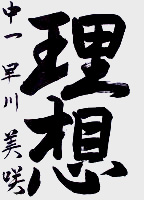 理想
中一 早川 美咲